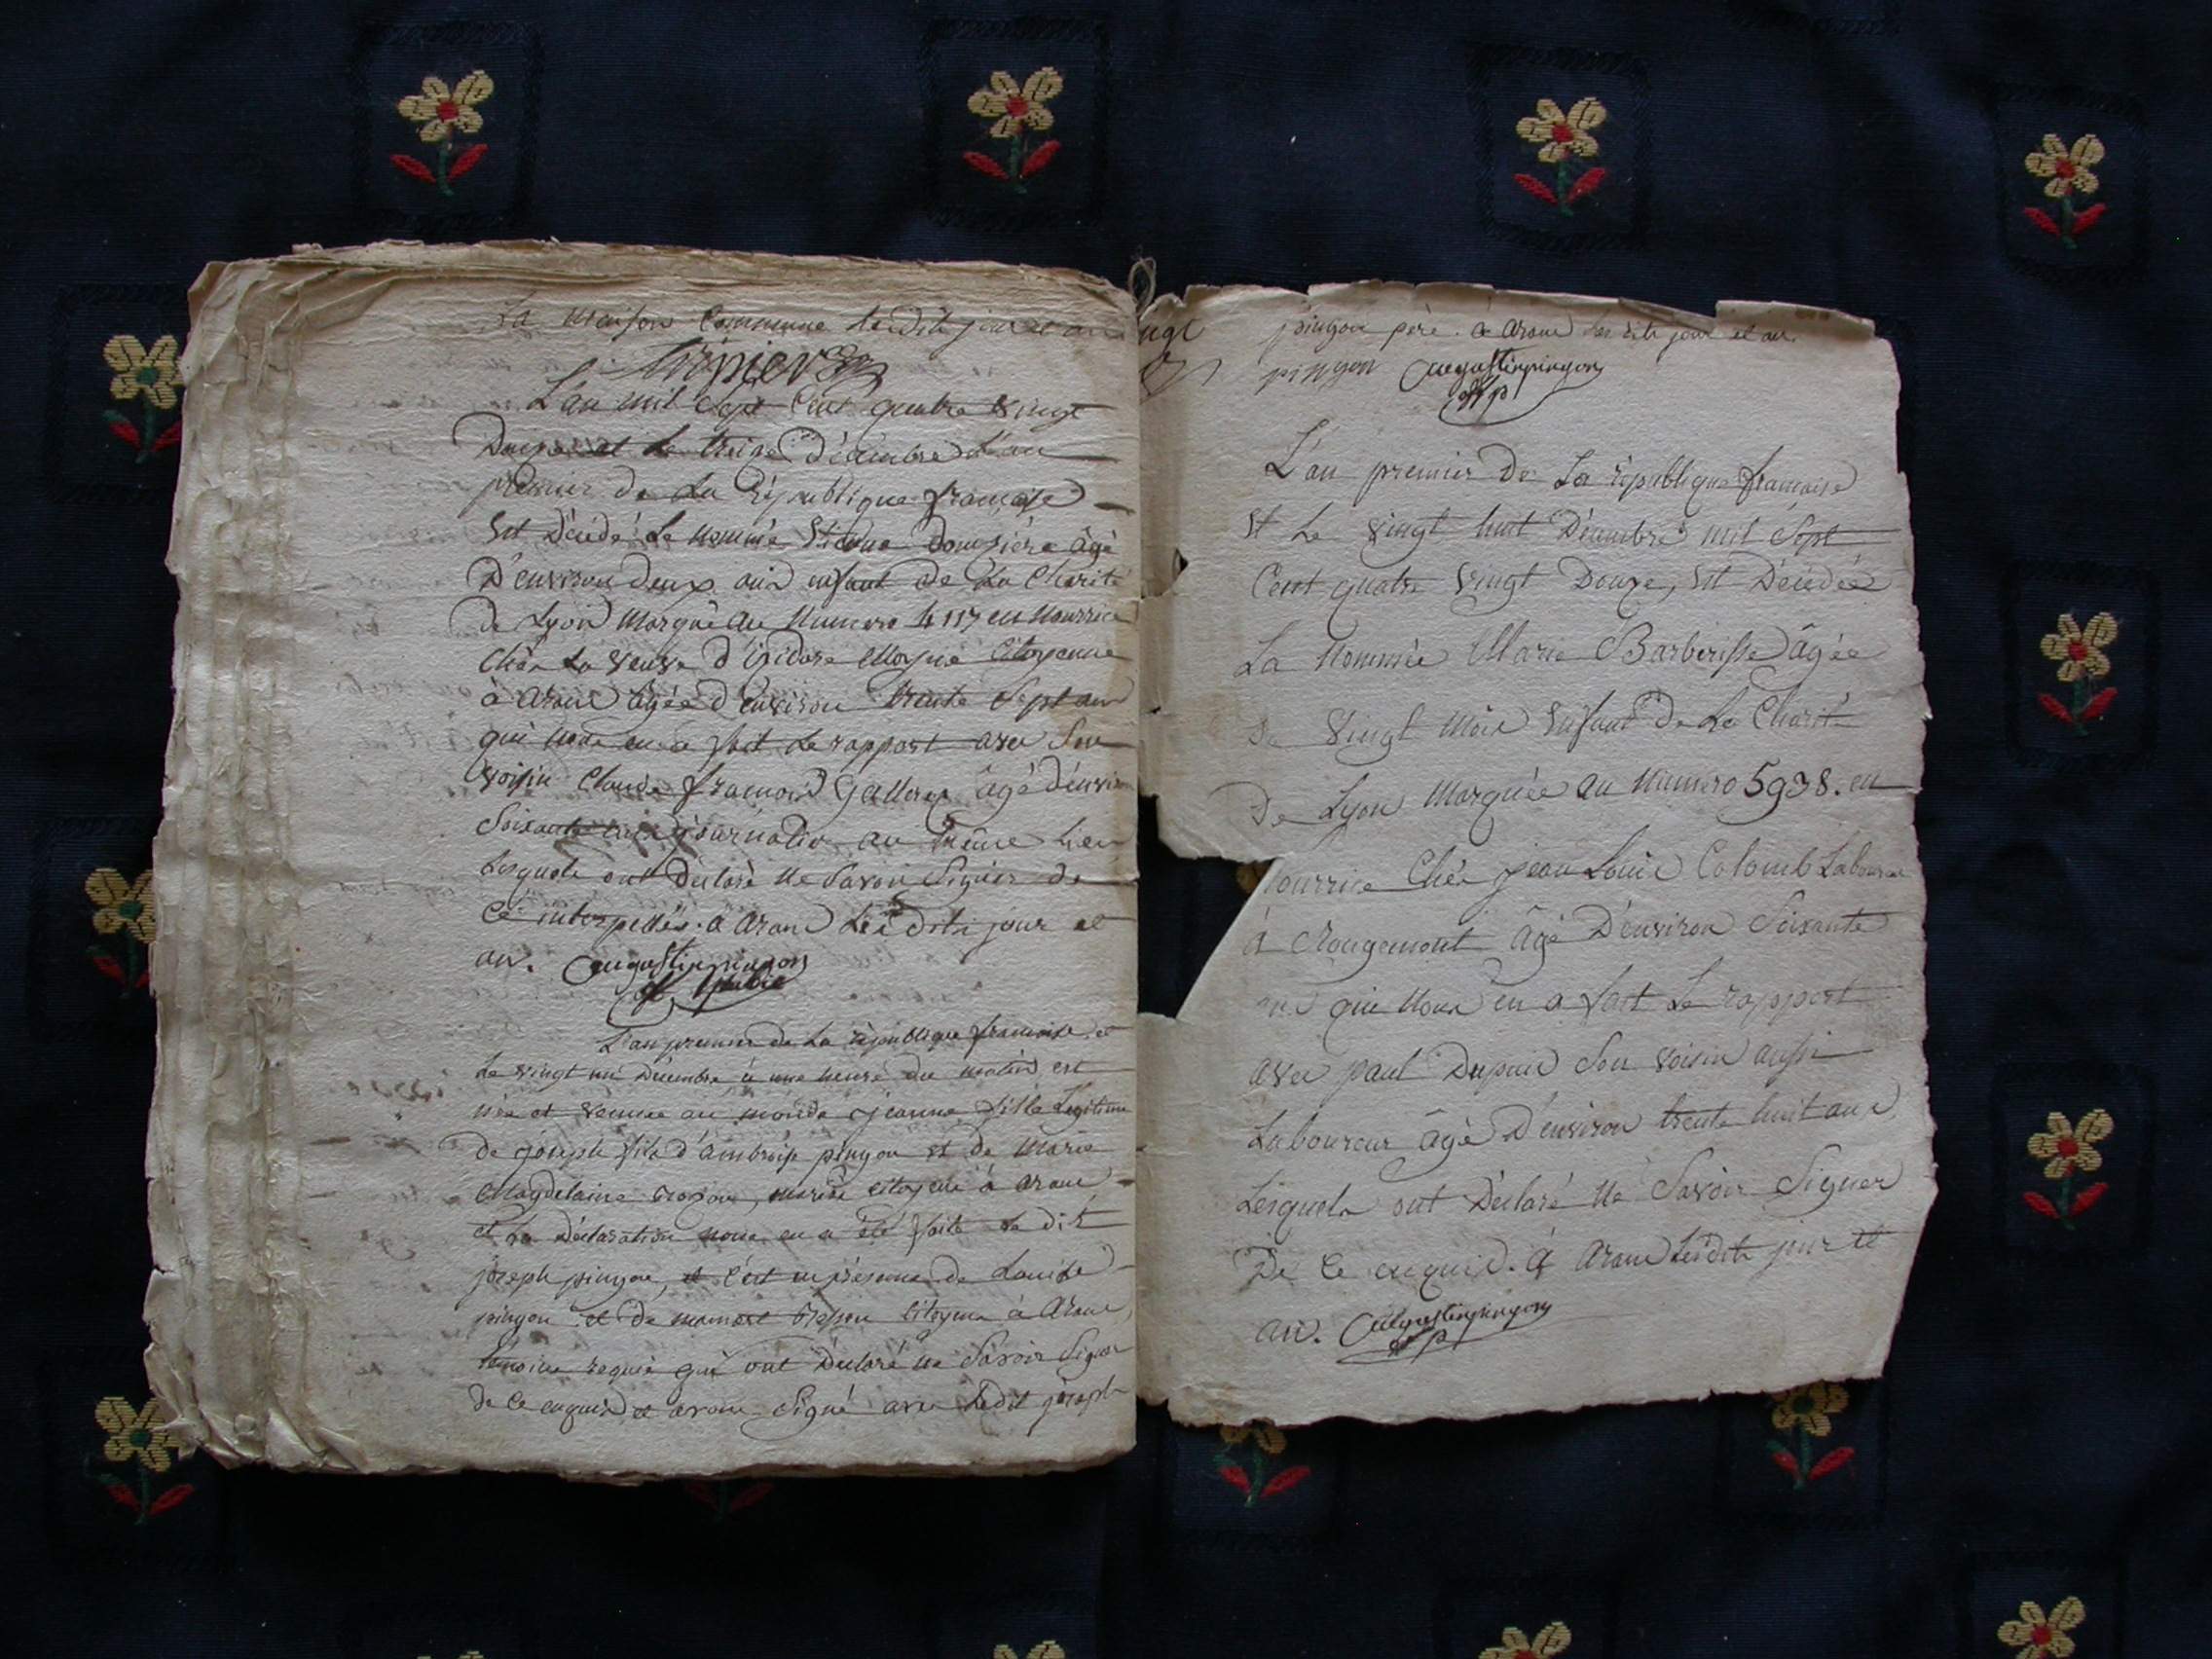 La maison Commune lesdits jour et an
L'an mil Sept Cent quatre vingt
Douze et le treize Décembre L'an
premier de La République française
Est Décédé Le nommé Etienne Dompiere âgé
D'environ deux ans enfant de La Charité
de Lyon Marqué au Numero 4117 en Nourrice
Chés La veuve d'isidore Moyne Citoyenne
à Aranc âgée d'environ trente Sept ans
qui nous en a fait Le rapport avec Son
voisin Claude françois âgé d'environ
Soixante ans journalier au même Lieu
Lesquels ont Déclaré ne Savoir Signer de
Ce interpellés. a Aranc Lesdits jour et
an. augustinpingon
L'an premier de La république française et
Le vingt un Décembre à une heure du matin est
née et venue au monde jeanne fille Legitime
de joseph fils d'ambroise pingon et de Marie
Magdelaine mariés citoyens à aranc
et La Déclaration nous en a été faite Le dit
joseph pingon, et c'est en présence de Louise
pingon et de citoyens à Aranc
témoins requis qui ont Déclaré ne Savoir Signer
de Ce enquis et avons Signé avec Ledit joseph
pingon père. à Aranc Les dits jour et an.
pingon augustinpingon
L'an premier De La république française
Et Le vingt huit Décembre mil Sept
Cent quatre vingt Douze, Est Décédée
La Nommée Marie Barberisse âgée
De vingt Mois Enfant De La Charité
De Lyon Marquée au Numero 5938. en
ourrice Chés jean Louis Colomb Laboureur
à Rougemont âgé D'environ Soixante
ans qui Nous en a fait Le rapport
avec paul Dupuis Son voisin aussi
Laboureur âgé D'environ trente huit ans
Lesquels ont Déclaré Ne Savoir Signer
De Ce enquis. à Aranc Lesdits jour et
an. augustinpingon